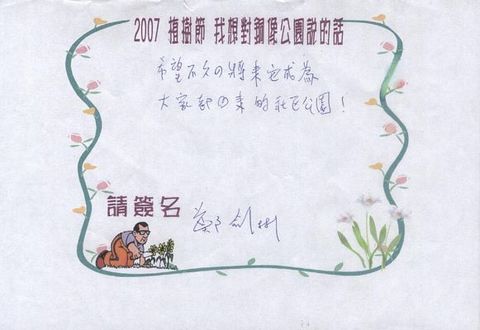 2007 植樹節 我想對銅像公園說的話
希望不久の將來完成為
大家都の來的社區公園！
請簽名
鄭